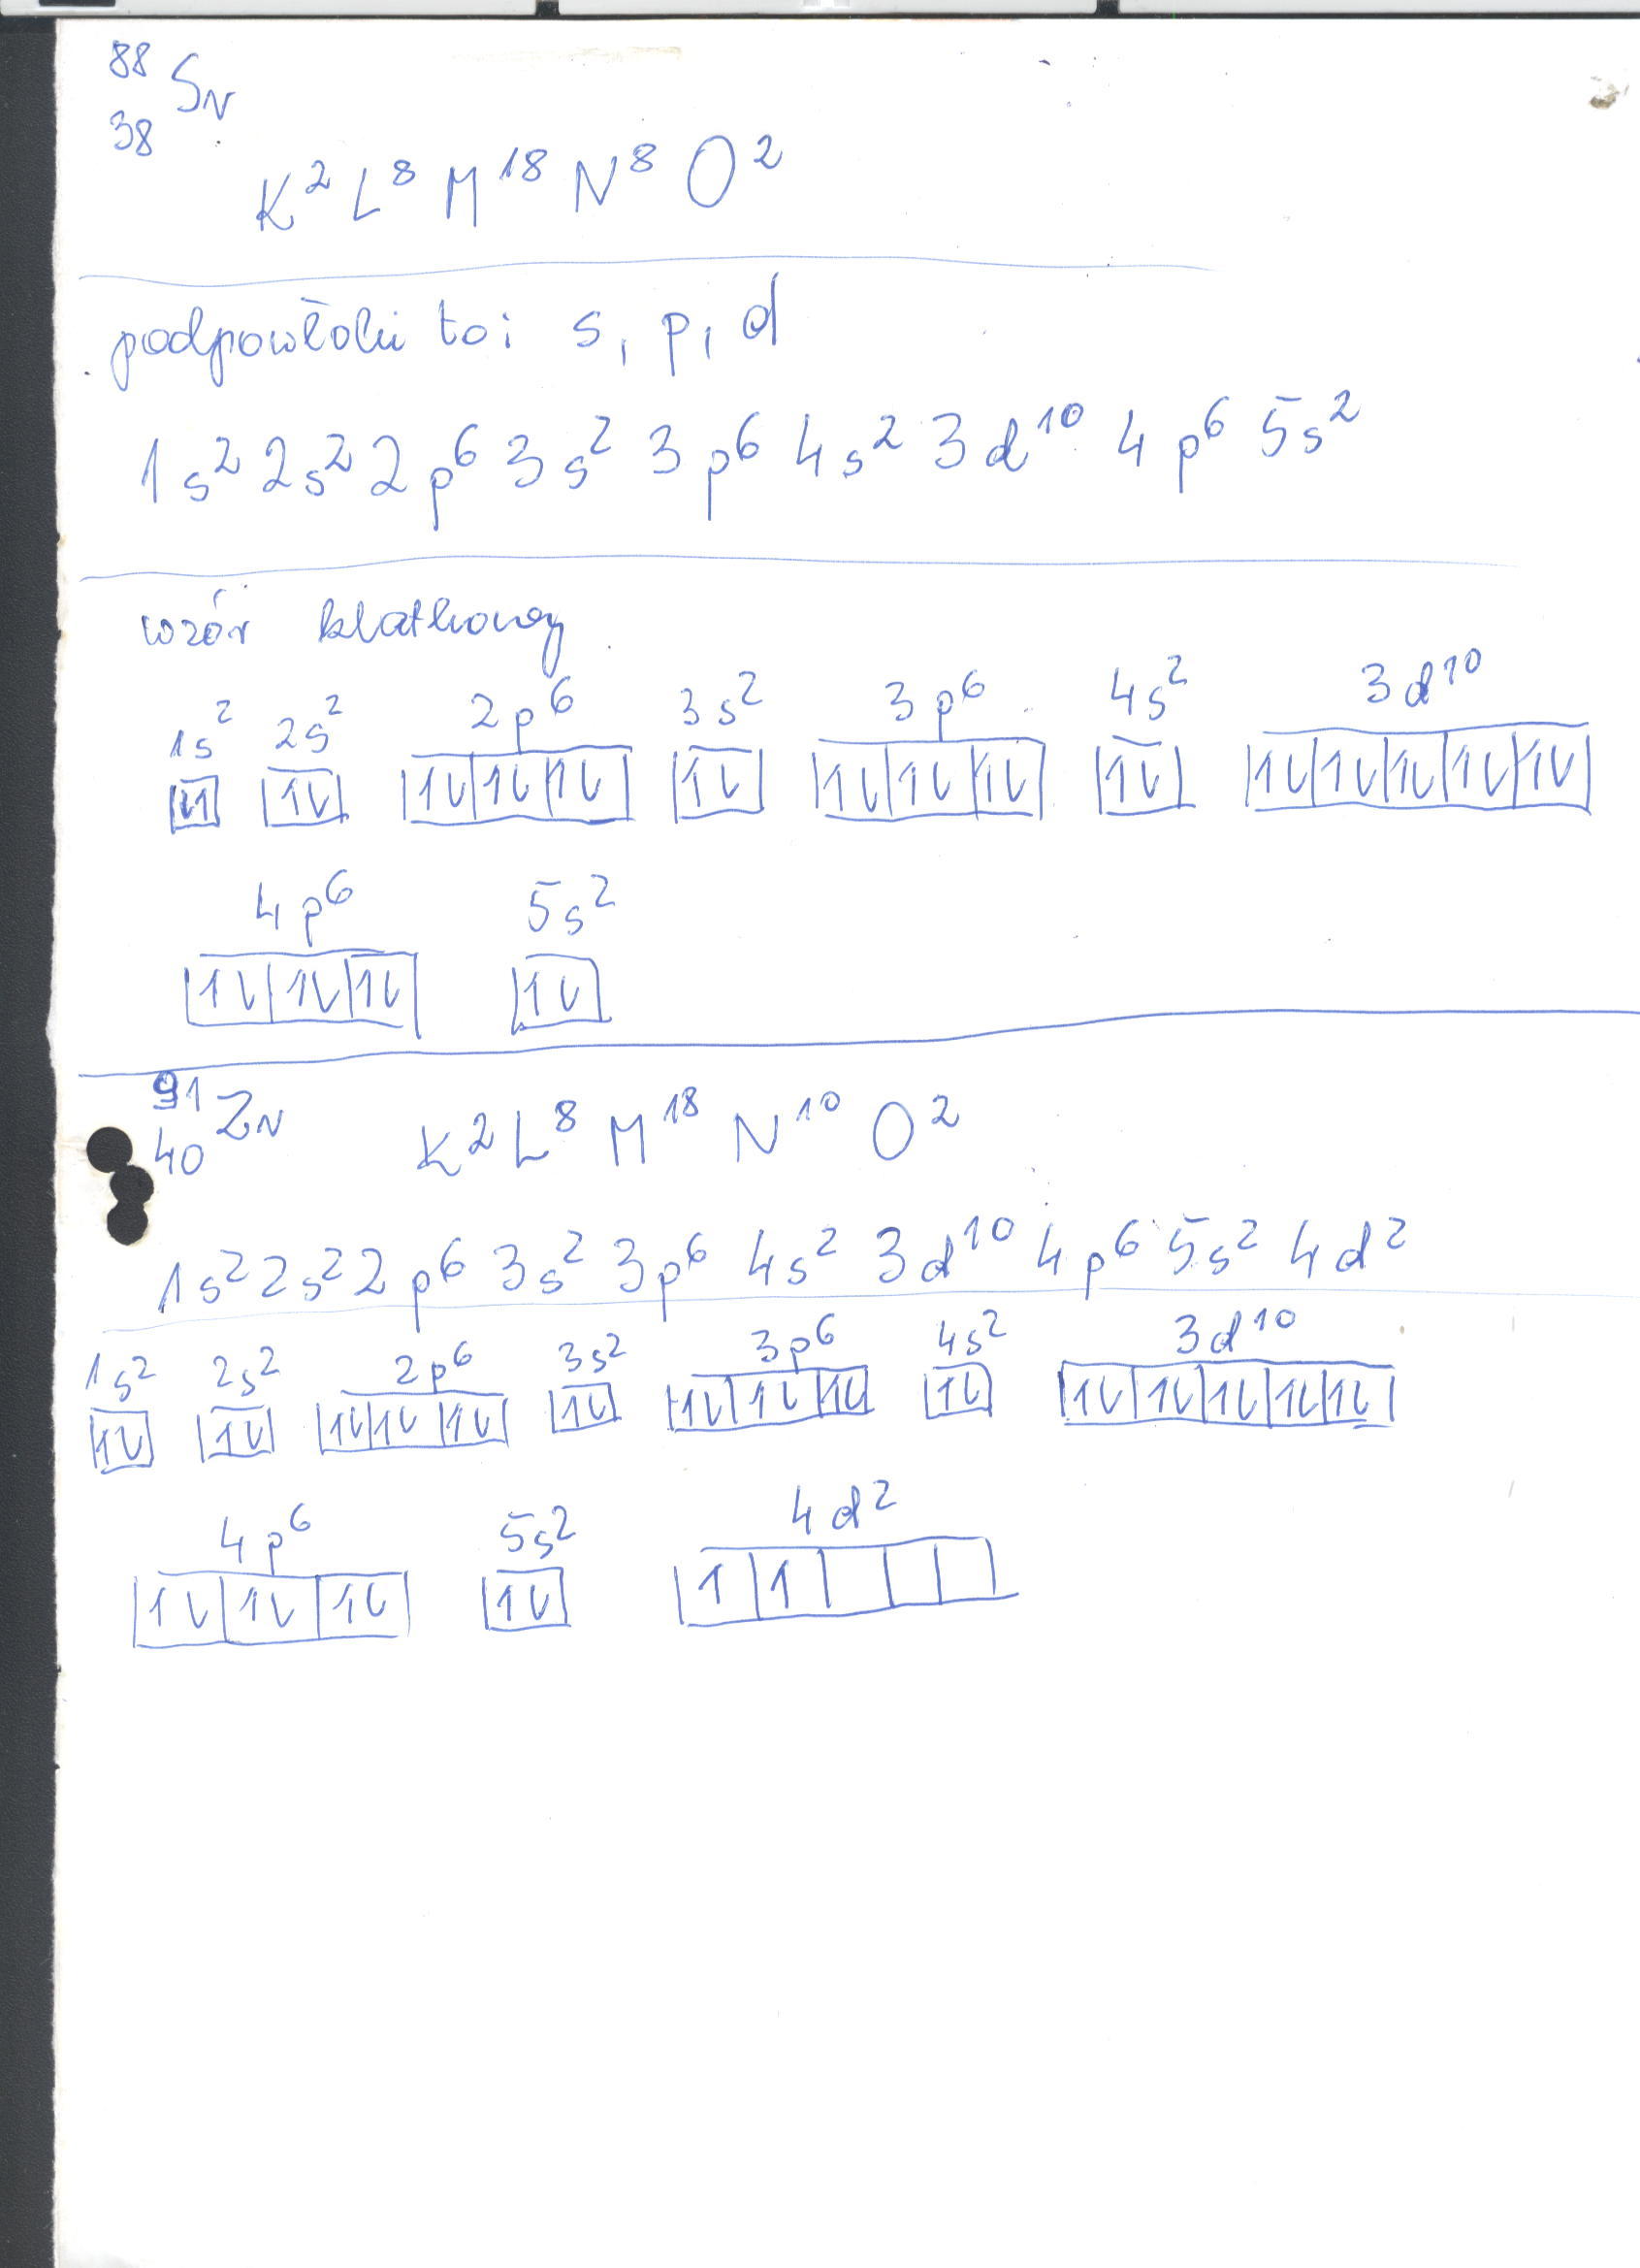 88
38 Sr
K² L⁸ M¹⁸ N⁸ O²
podpowłoki to: s, p, d
1s² 2s² 2p⁶ 3s² 3p⁶ 4s² 3d¹⁰ 4p⁶ 5s²
wzór klatkowy
1s² 2s² 2p⁶ 3s² 3p⁶ 4s² 3d¹⁰
↓↑ ↑↓ ↑↓ ↑↓ ↑↓ ↑↓ ↑↓ ↑↓ ↑↓ ↑↓ ↑↓ ↑↓ ↑↓ ↑↓ ↑↓
4p⁶ 5s²
↑↓ ↑↓ ↑↓ ↑↓
91
40 Zr K² L⁸ M¹⁸ N¹⁰ O²
1s² 2s² 2p⁶ 3s² 3p⁶ 4s² 3d¹⁰ 4p⁶ 5s² 4d²
1s² 2s² 2p⁶ 3s² 3p⁶ 4s² 3d¹⁰
↑↓ ↑↓ ↑↓ ↑↓ ↑↓ ↑↓ ↑↓ ↑↓ ↑↓ ↑↓ ↑↓ ↑↓ ↑↓ ↑↓ ↑↓
4p⁶ 5s² 4d²
↑↓ ↑↓ ↑↓ ↑↓ ↑ ↑